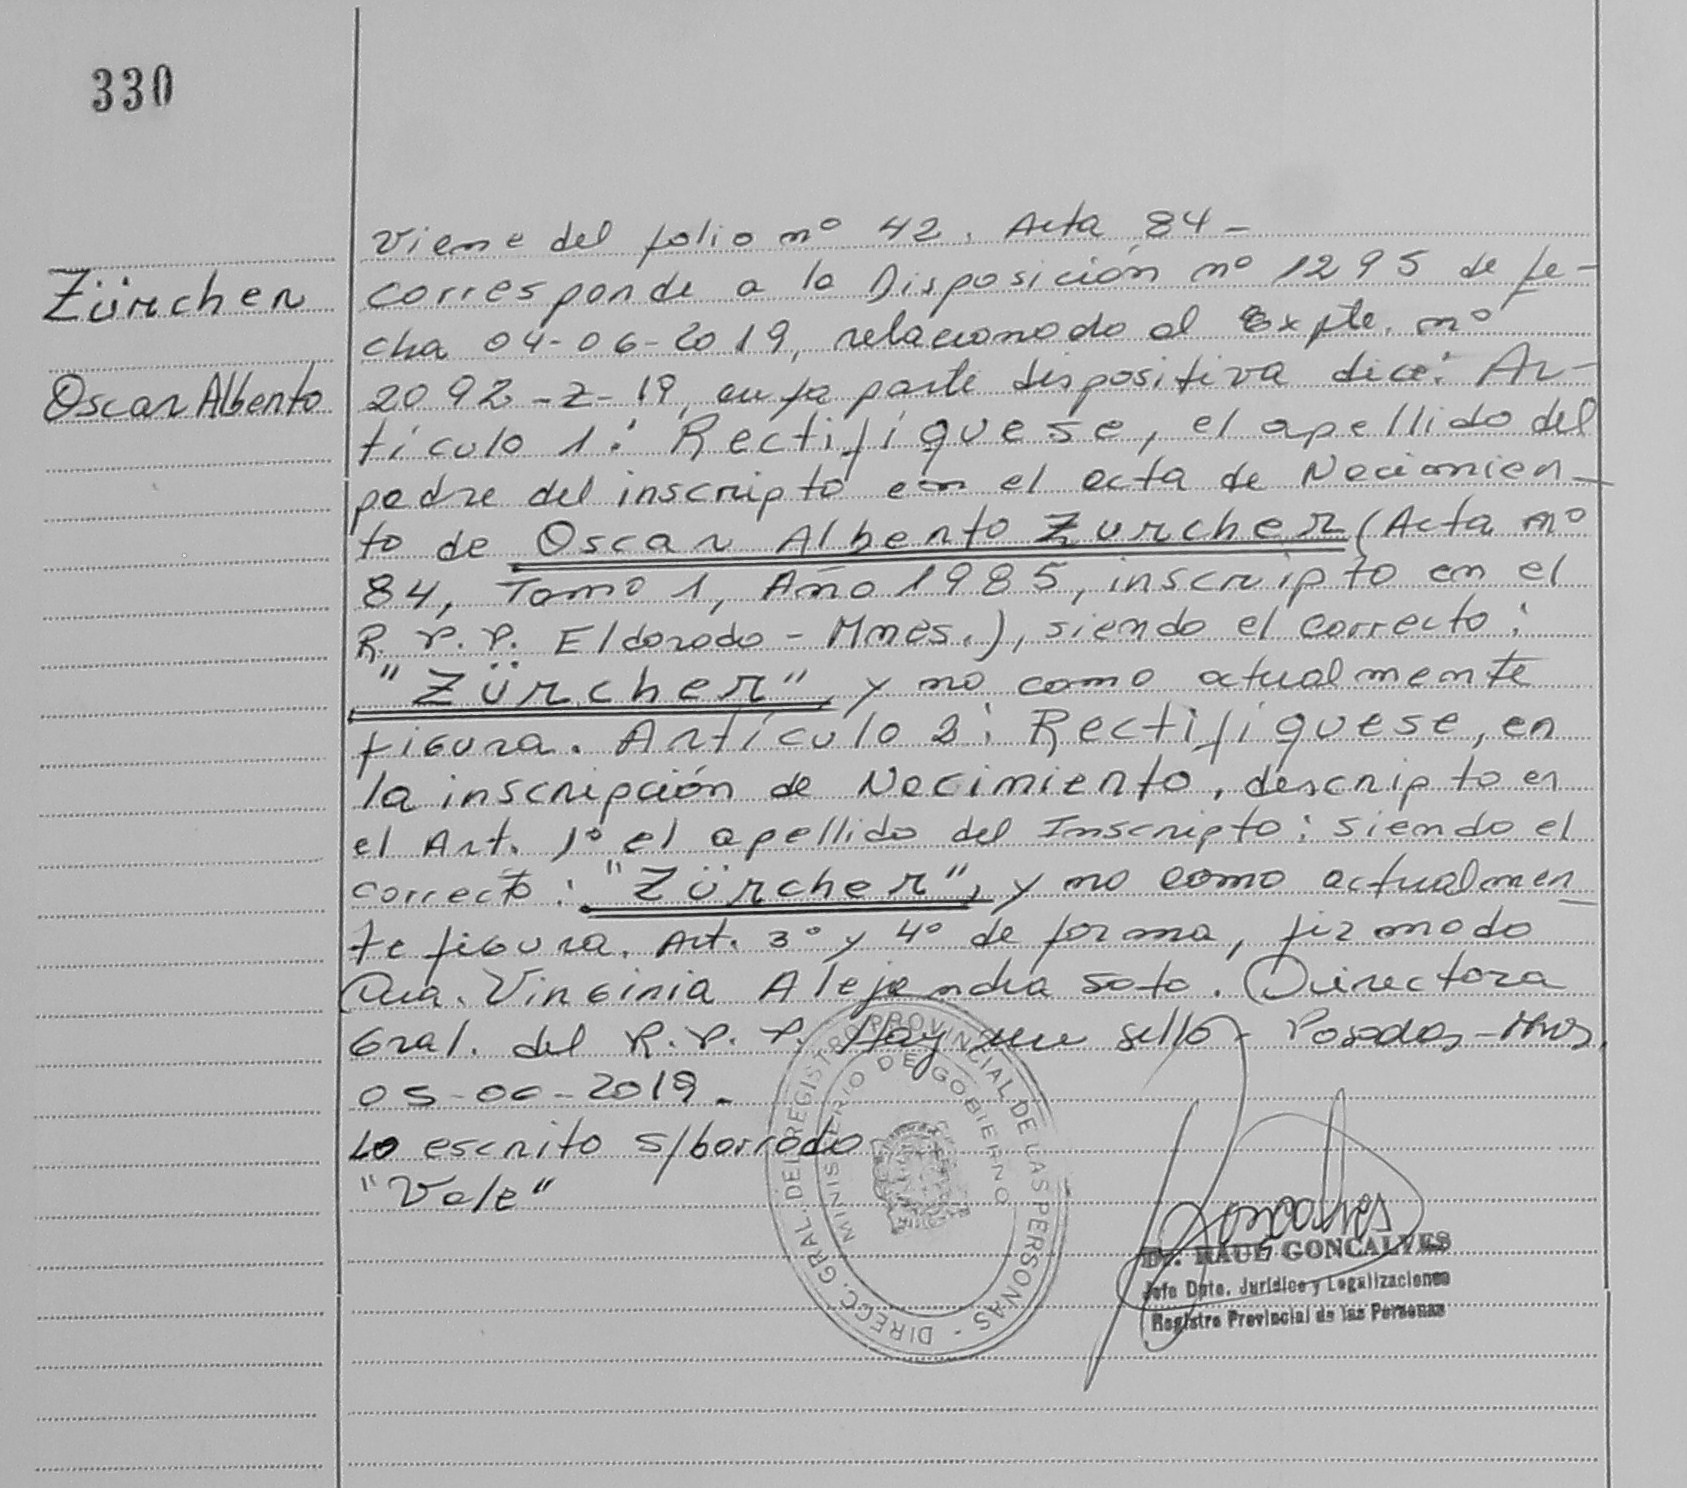 330
Zürcher
Oscar Alberto
Viene del folio nº 42. Acta 84-
Corresponde a la Disposición nº 1295 de fe-
cha 04-06-2019, relacionado al Expte. nº
2092-Z-19, cuya parte dispositiva dice: Ar-
tículo 1: Rectifíquese, el apellido del
padre del inscripto en el acta de Nacimien-
to de Oscar Alberto Zurcher (Acta nº
84, Tomo 1, Año 1985, inscripto en el
R.P.P. Eldorado - Mnes.), siendo el correcto:
"Zürcher", y no como actualmente
figura. Artículo 2: Rectifíquese, en
la inscripción de Nacimiento, descripto en
el Art. 1º el apellido del Inscripto: siendo el
correcto: "Zürcher", y no como actualmen
te figura. Art. 3º y 4º de forma, firmado
Dra. Virginia Alejandra Soto. Directora
Gral. del R.P.P. Hay un sello - Posadas - Mnes,
05-06-2019.
Lo escrito s/borrado
"Vale"
DIRECC. GRAL. DEL REGISTRO PROVINCIAL DE LAS PERSONAS -
MINISTERIO DE GOBIERNO
Gonçalves
Dr. RAUL GONCALVES
Jefe Dpto. Jurídico y Legalizaciones
Registro Provincial de las Personas